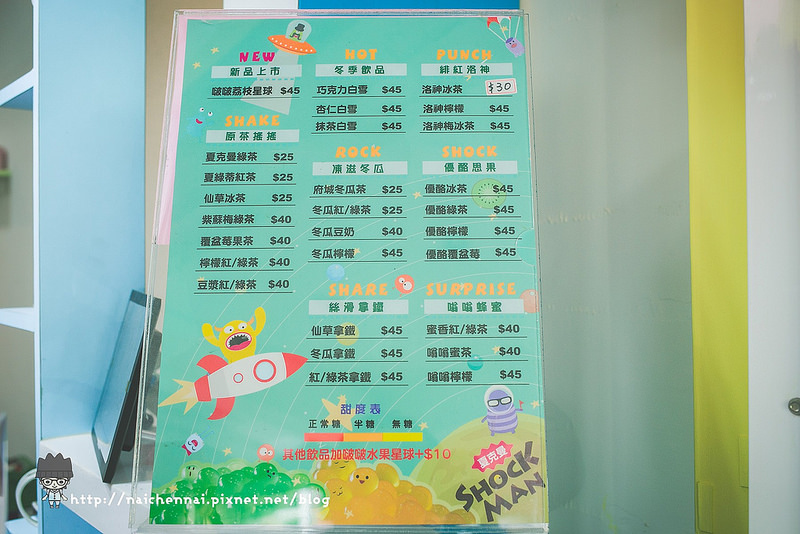 NEW
新品上市
啵啵荔枝星球 $45
SHAKE
原茶搖搖
夏克曼綠茶 $25
夏綠蒂紅茶 $25
仙草冰茶 $25
紫蘇梅綠茶 $40
覆盆莓果茶 $40
檸檬紅/綠茶 $40
豆漿紅/綠茶 $40
HOT
冬季飲品
巧克力白雪 $45
杏仁白雪 $45
抹茶白雪 $45
ROCK
凍滋冬瓜
府城冬瓜茶 $25
冬瓜紅/綠茶 $25
冬瓜豆奶 $40
冬瓜檸檬 $45
SHARE
絲滑拿鐵
仙草拿鐵 $45
冬瓜拿鐵 $45
紅/綠茶拿鐵 $45
PUNCH
緋紅洛神
洛神冰茶 $30
洛神檸檬 $45
洛神梅冰茶 $45
SHOCK
優酪思果
優酪冰茶 $45
優酪綠茶 $45
優酪檸檬 $45
優酪覆盆莓 $45
SURPRISE
嗡嗡蜂蜜
蜜香紅/綠茶 $40
嗡嗡蜜茶 $40
嗡嗡檸檬 $45
甜度表
正常糖 半糖 無糖
其他飲品加啵啵水果星球+$10
夏克曼
SHOCK
MAN
http://naichennai.pixnet.net/blog